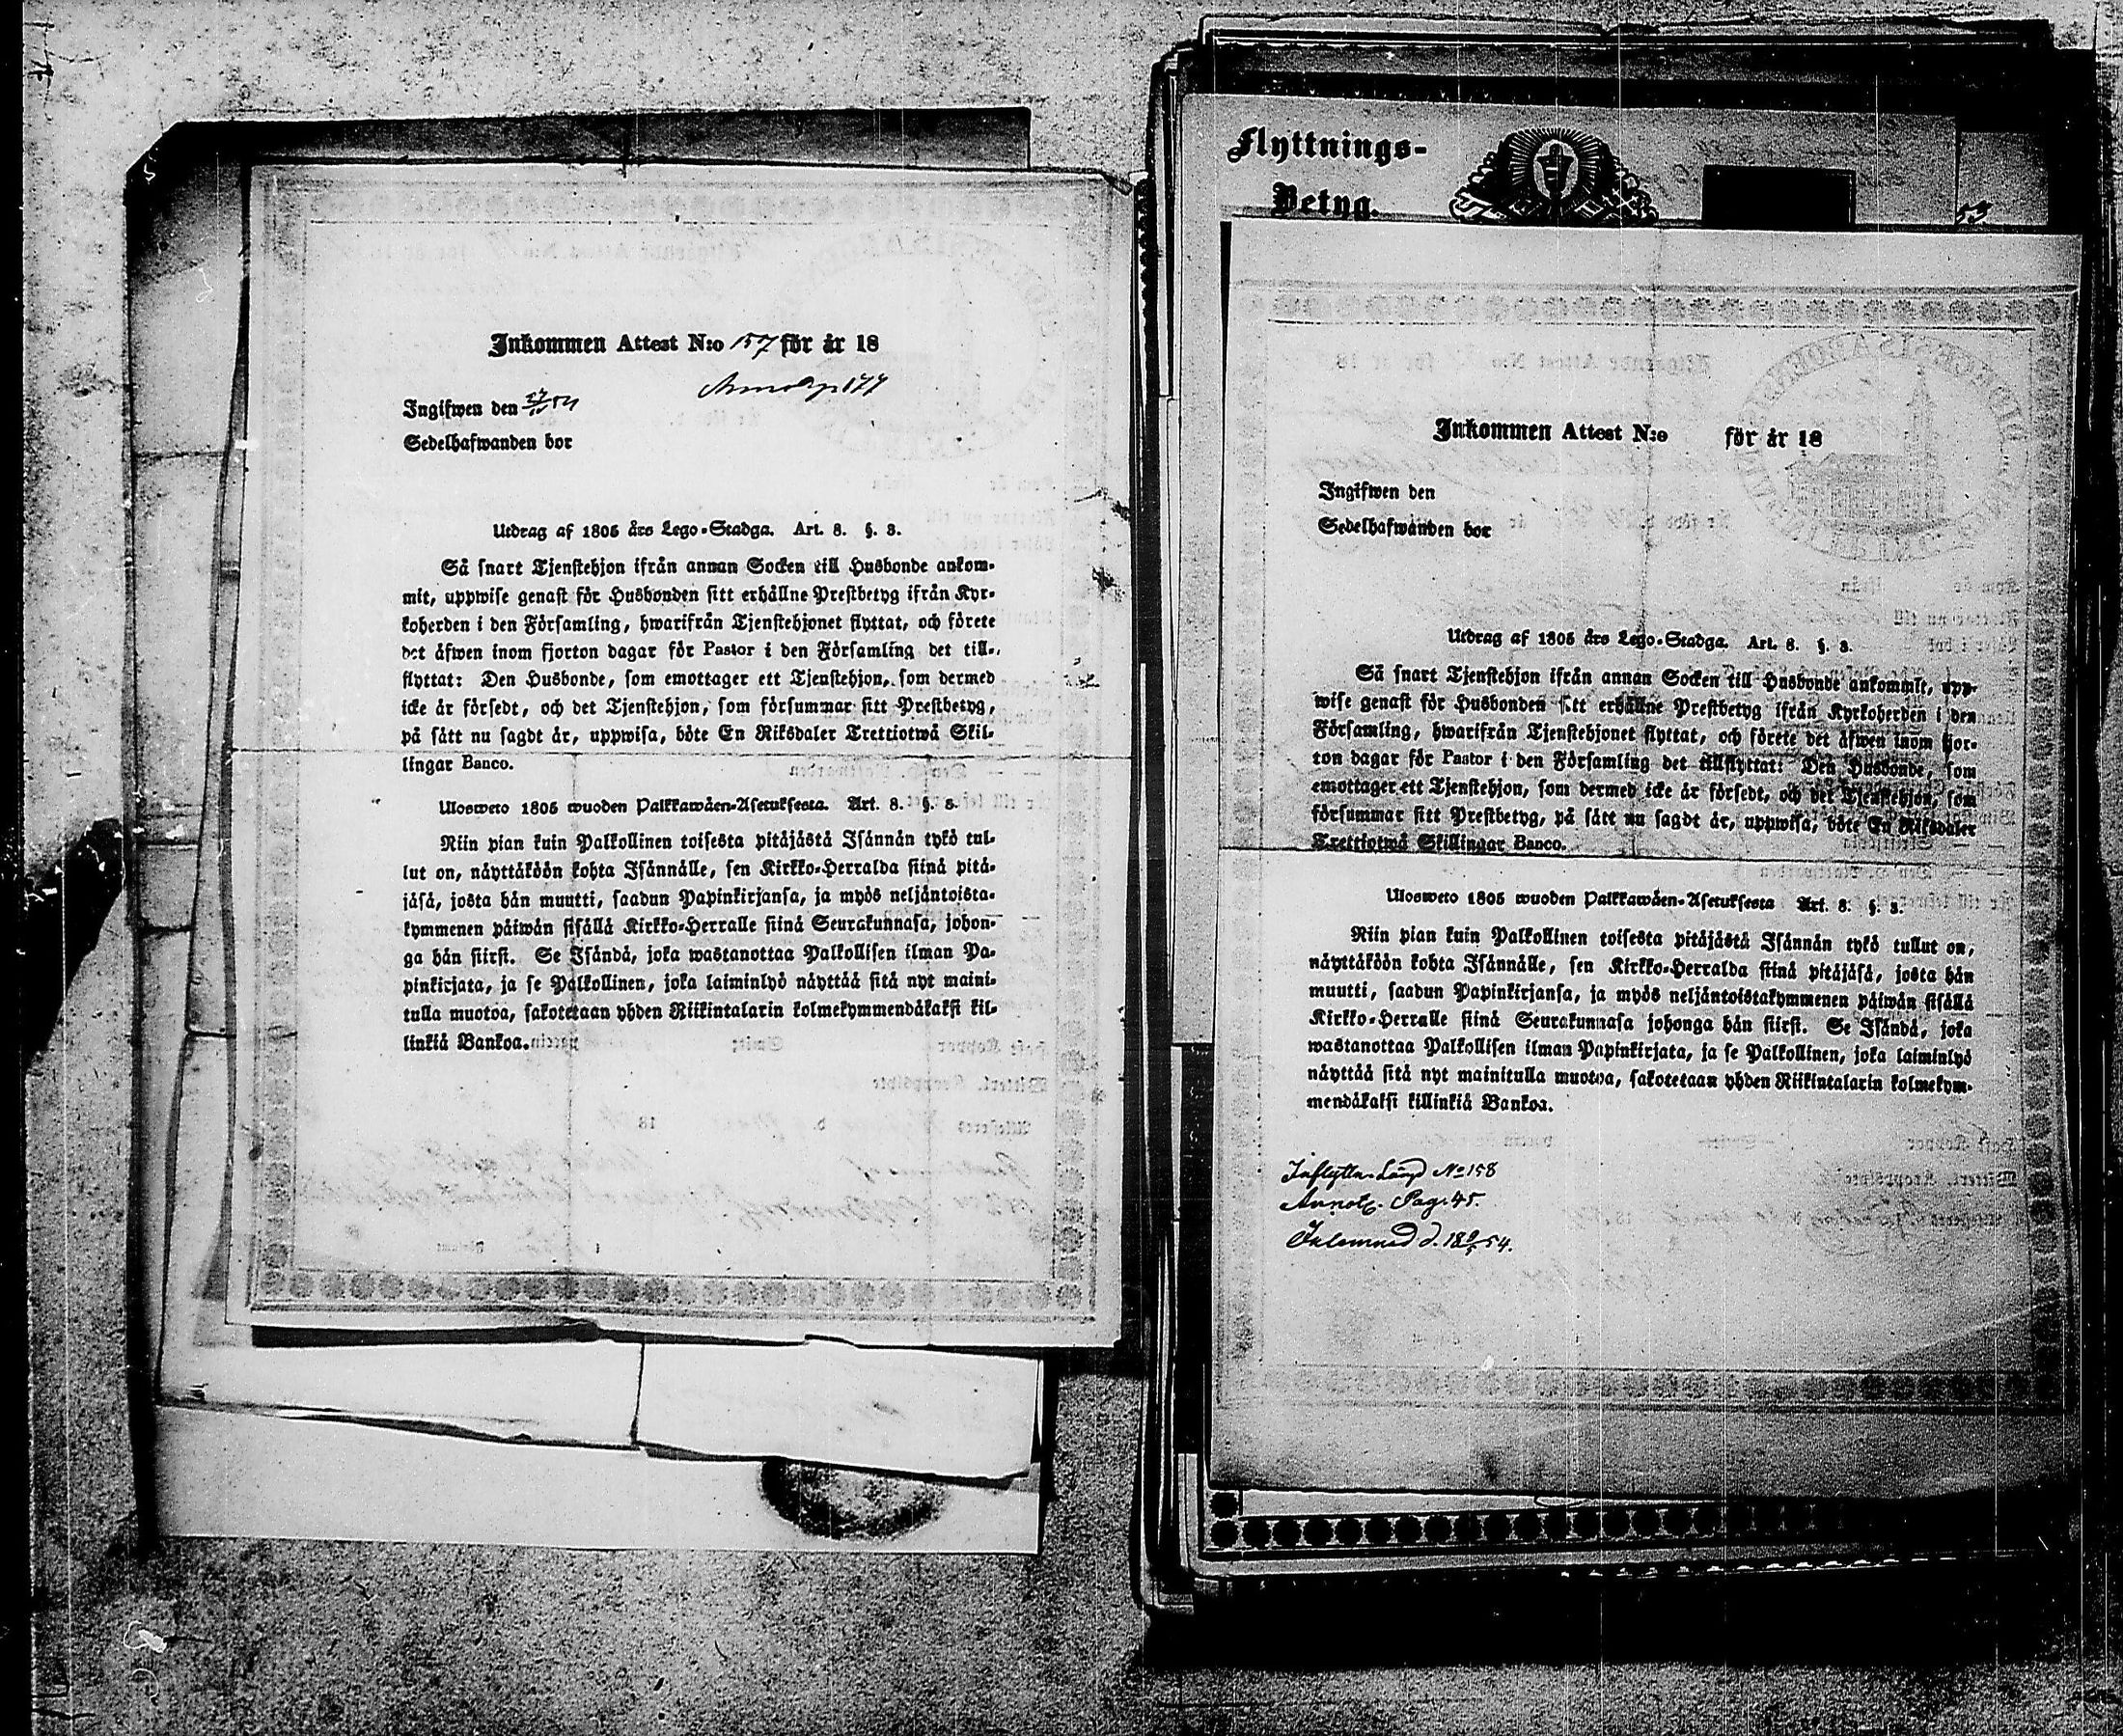 Inkommen Attest N:o 157 för år 18
Ingifwen den
Sedelhafwanden bor
Utdrag af 1805 års Lego-Stadga. Art. 8. §. 3.
Så snart Tjenstehjon ifrån annan Socken till Husbonde ankom-
mit, uppwise genast för Husbonden sitt erhållne Prestbetyg ifrån Kyr-
koherden i den Församling, hwarifrån Tjenstehjonet flyttat, och förete
det äfwen inom fjorton dagar för Pastor i den Församling det till-
flyttat: Den Husbonde, som emottager ett Tjenstehjon, som dermed
icke är försedt, och det Tjenstehjon, som försummar sitt Prestbetyg,
på sätt nu sagdt är, uppwisa, böte En Riksdaler Trettiotwå Skil-
lingar Banco.
Ulosweto 1805 wuoden Palkkawäen-Asetuksesta. Art. 8. §. 3.
Niin pian kuin Palkollinen toisesta pitäjästä Isännän tykö tul-
lut on, näyttäköön kohta Isännälle, sen Kirkko-Herralda siinä pitä-
jäsä, josta hän muutti, saadun Papinkirjansa, ja myös neljäntoista-
kymmenen päiwän sisällä Kirkko-Herralle siinä Seurakunnasa, johon-
ga hän siirst. Se Isändä, joka wastanottaa Palkollisen ilman Pa-
pinkirjata, ja se Palkollinen, joka laiminlyö näyttää sitä nyt maini-
tulla muotoa, sakotetaan yhden Riikintalarin kolmekymmendäkaksi kil-
linkiä Bankoa.
Flyttnings-
Betyg.
53
Inkommen Attest N:o för år 18
Ingifwen den
Sedelhafwanden bor
Utdrag af 1805 års Lego-Stadga. Art. 8. §. 3.
Så snart Tjenstehjon ifrån annan Socken till Husbonde ankommit, upp-
wise genast för Husbonden sitt erhållne Prestbetyg ifrån Kyrkoherden i den
Församling, hwarifrån Tjenstehjonet flyttat, och förete det äfwen inom fjor-
ton dagar för Pastor i den Församling det tillflyttat: Den Husbonde, som
emottager ett Tjenstehjon, som dermed icke är försedt, och det Tjenstehjon, som
försummar sitt Prestbetyg, på sätt nu sagdt är, uppwisa, böte En Riksdaler
Trettiotwå Skillingar Banco.
Ulosweto 1805 wuoden Palkkawäen-Asetuksesta Art. 8. §. 3.
Niin pian kuin Palkollinen toisesta pitäjästä Isännän tykö tullut on,
näyttäköön kohta Isännälle, sen Kirkko-Herralda siinä pitäjäsä, josta hän
muutti, saadun Papinkirjansa, ja myös neljäntoistakymmenen päiwän sisällä
Kirkko-Herralle siinä Seurakunnasa johonga hän siirst. Se Isändä, joka
wastanottaa Palkollisen ilman Papinkirjata, ja se Palkollinen, joka laiminlyö
näyttää sitä nyt mainitulla muotoa, sakotetaan yhden Riikintalarin kolmekym-
mendäkaksi killinkiä Bankoa.
Inflyttn. Längd No 158
Annot. Pag. 45.